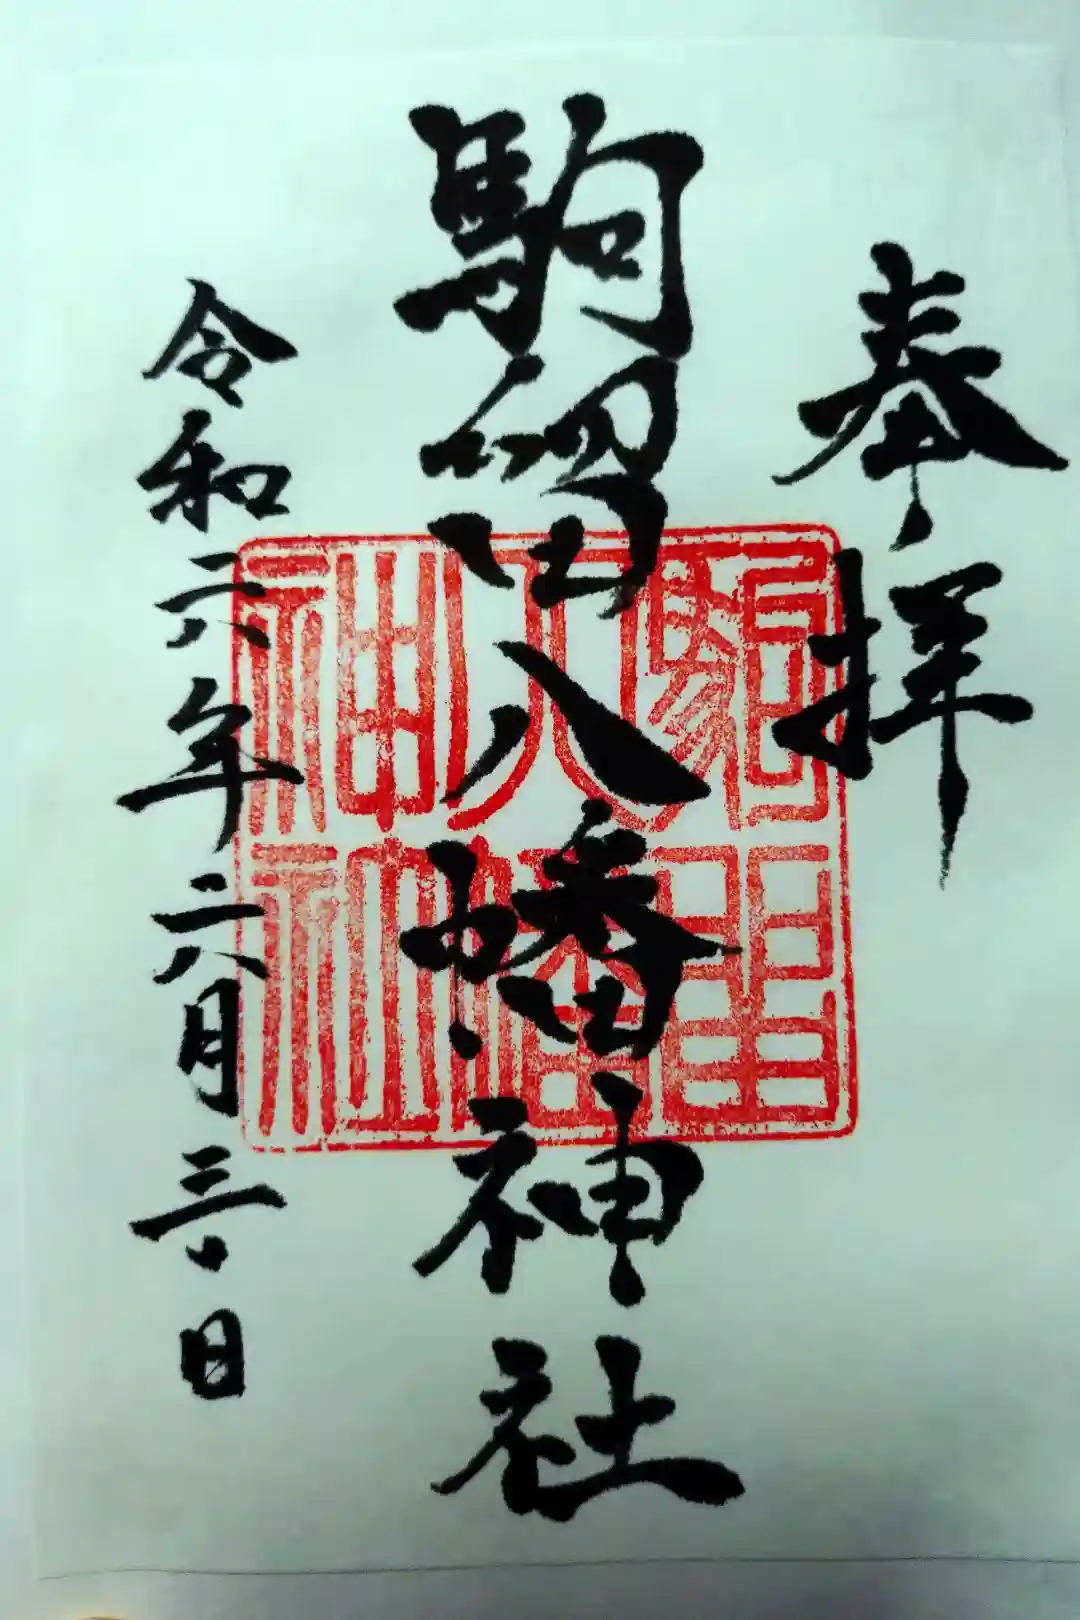 奉拝
駒留八幡神社
令和六年六月三〇日
駒留
八幡
神社